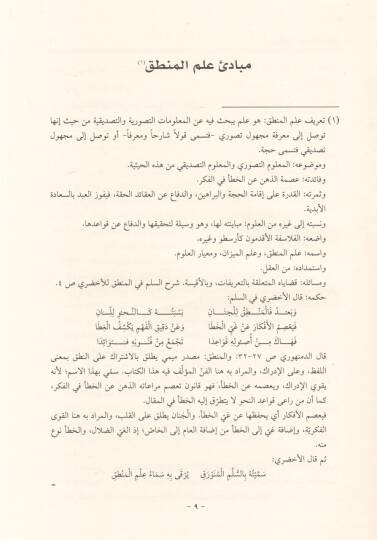 مبادئ علم المنطق(١)
(١) تعريف علم المنطق: هو علم يبحث فيه عن المعلومات التصورية والتصديقية من حيث إنها
توصل إلى معرفة مجهول تصوري -فتسمى قولاً شارحاً ومعرفاً- أو توصل إلى مجهول
تصديقي فتسمى حجة.
وموضوعه: المعلوم التصوري والمعلوم التصديقي من هذه الحيثية.
وفائدته: عصمة الذهن عن الخطأ في الفكر.
وثمرته: القدرة على إقامة الحجة والبراهين، والدفاع عن العقائد الحقة، فيفوز العبد بالسعادة
الأبدية.
ونسبته إلى غيره من العلوم: مباينته لها، وهو وسيلة لتحقيقها والدفاع عن قواعدها.
واضعه: الفلاسفة الأقدمون كأرسطو وغيره.
واسمه: علم المنطق، وعلم الميزان، ومعيار العلوم.
واستمداده: من العقل.
ومسائله: قضاياه المتعلقة بالتعريفات، وبالأقيسة. شرح السلم في المنطق للأخضري ص ٤.
حكمه: قال الأخضري في السلم:
وَبَعـدُ فَالْمَنطِقُ لِلْجَنـانِ نِسْبَتُـهُ كَـالنَّحوِ لِلِّسَانِ
فَيَعصِمُ الأفْكَارَ عَنْ غَيِّ الْخَطَا وَعَنْ دَقِيقِ الْفَهْمِ يَكْشِفُ الْغِطَا
فَهَـاكَ مِـنْ أُصـولِهِ قَواعِدَا تَجْمَعُ مِنْ فُنُـونِهِ فَـوَائِدَا
قال الدمنهوري ص ٢٧-٣٢: والمنطق: مصدر ميمي يطلق بالاشتراك على النطق بمعنى
اللفظ، وعلى الإدراك، والمراد به هنا الفنّ المؤلَّف فيه هذا الكتاب. سمّي بهذا الاسم؛ لأنه
يقوي الإدراك، ويعصمه عن الخطأ، فهو قانون تعصم مراعاته الذهن عن الخطأ في الفكر،
كما أن من راعى قواعد النحو لا يتطرّق إليه الخطأ في المقال.
فيعصم الأفكار أي يحفظها عن غيّ الخطأ. والجَنان يطلق على القلب، والمراد به هنا القوى
الفكريّة، وإضافة غيّ إلى الخطأ من إضافة العام إلى الخاصّ؛ إذ الغيّ الضلال، والخطأ نوع
منه.
ثم قال الأخضري:
سَمَّيْتُهُ بِالسُّلَّمِ الْمُنَوْرَقِ يُرْقَى بِهِ سَمَاءُ عِلْمِ الْمَنْطِقِ
- ٩ -